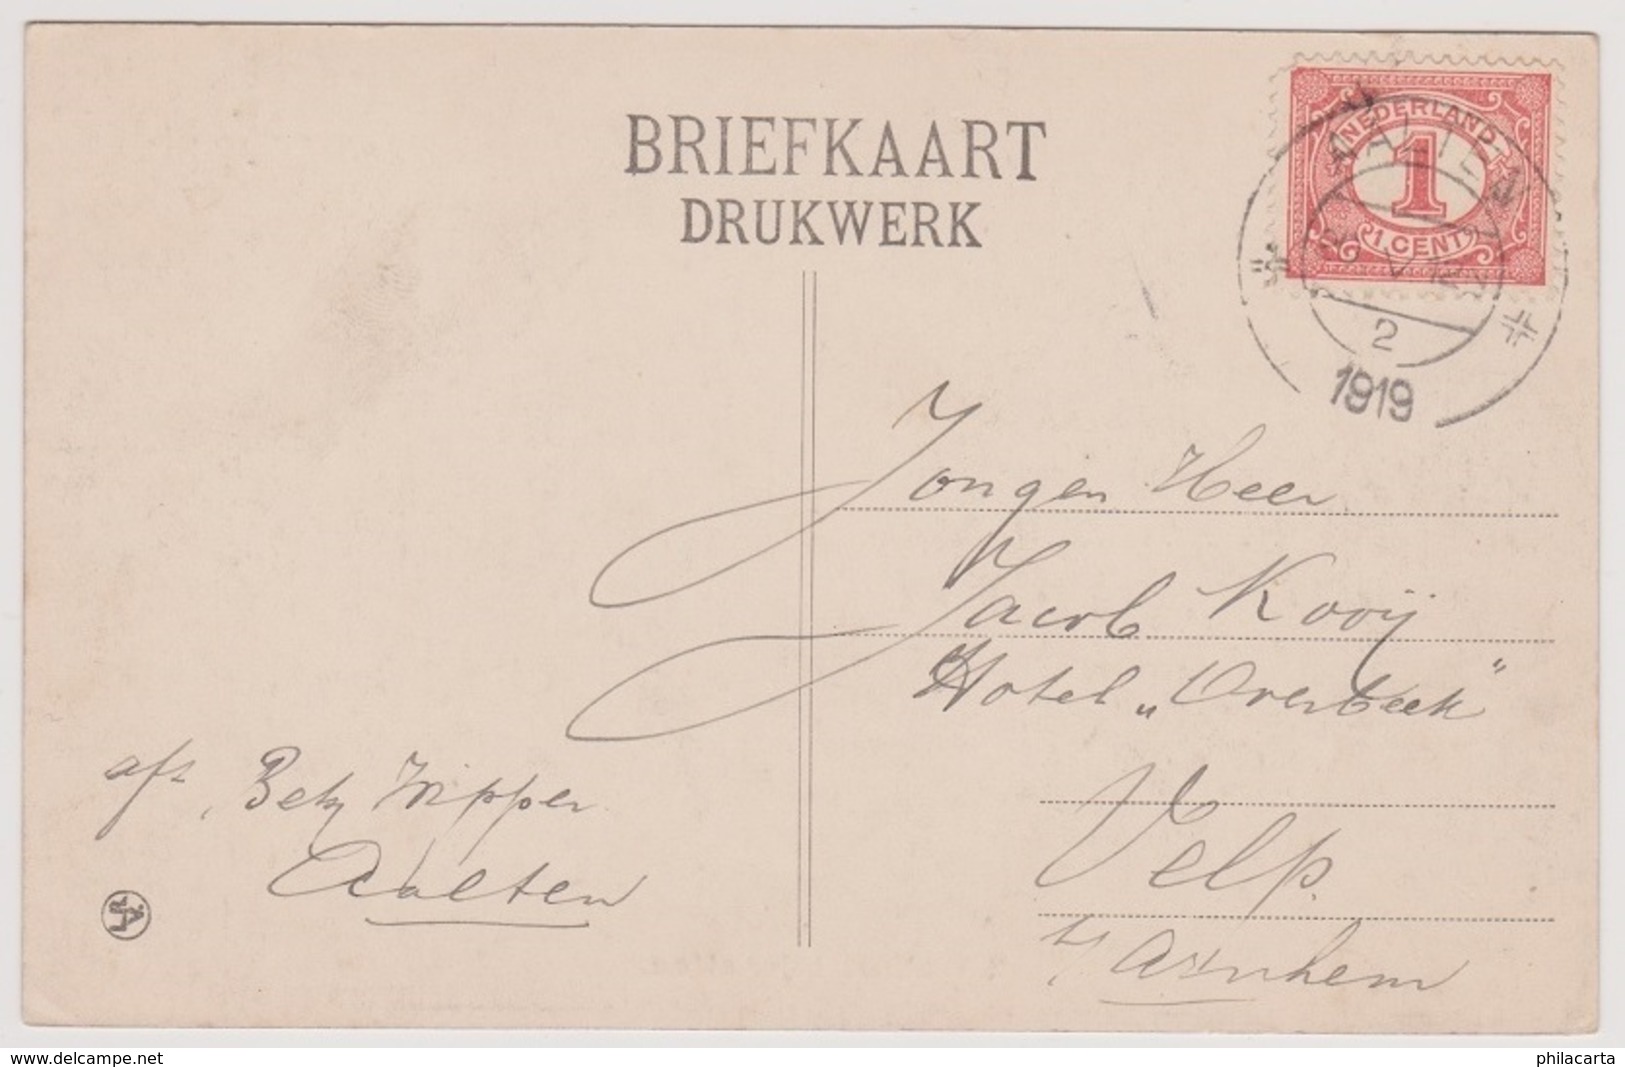 BRIEFKAART
DRUKWERK
NEDERLAND
1
1 CENT
AALTEN
2
1919
Jongen Heer
Jacob Kooij
Hotel „Overbeek"
Velp.
b/ Arnhem
afz. Betzy Wipper
Aalten
www.delcampe.net
philacarta